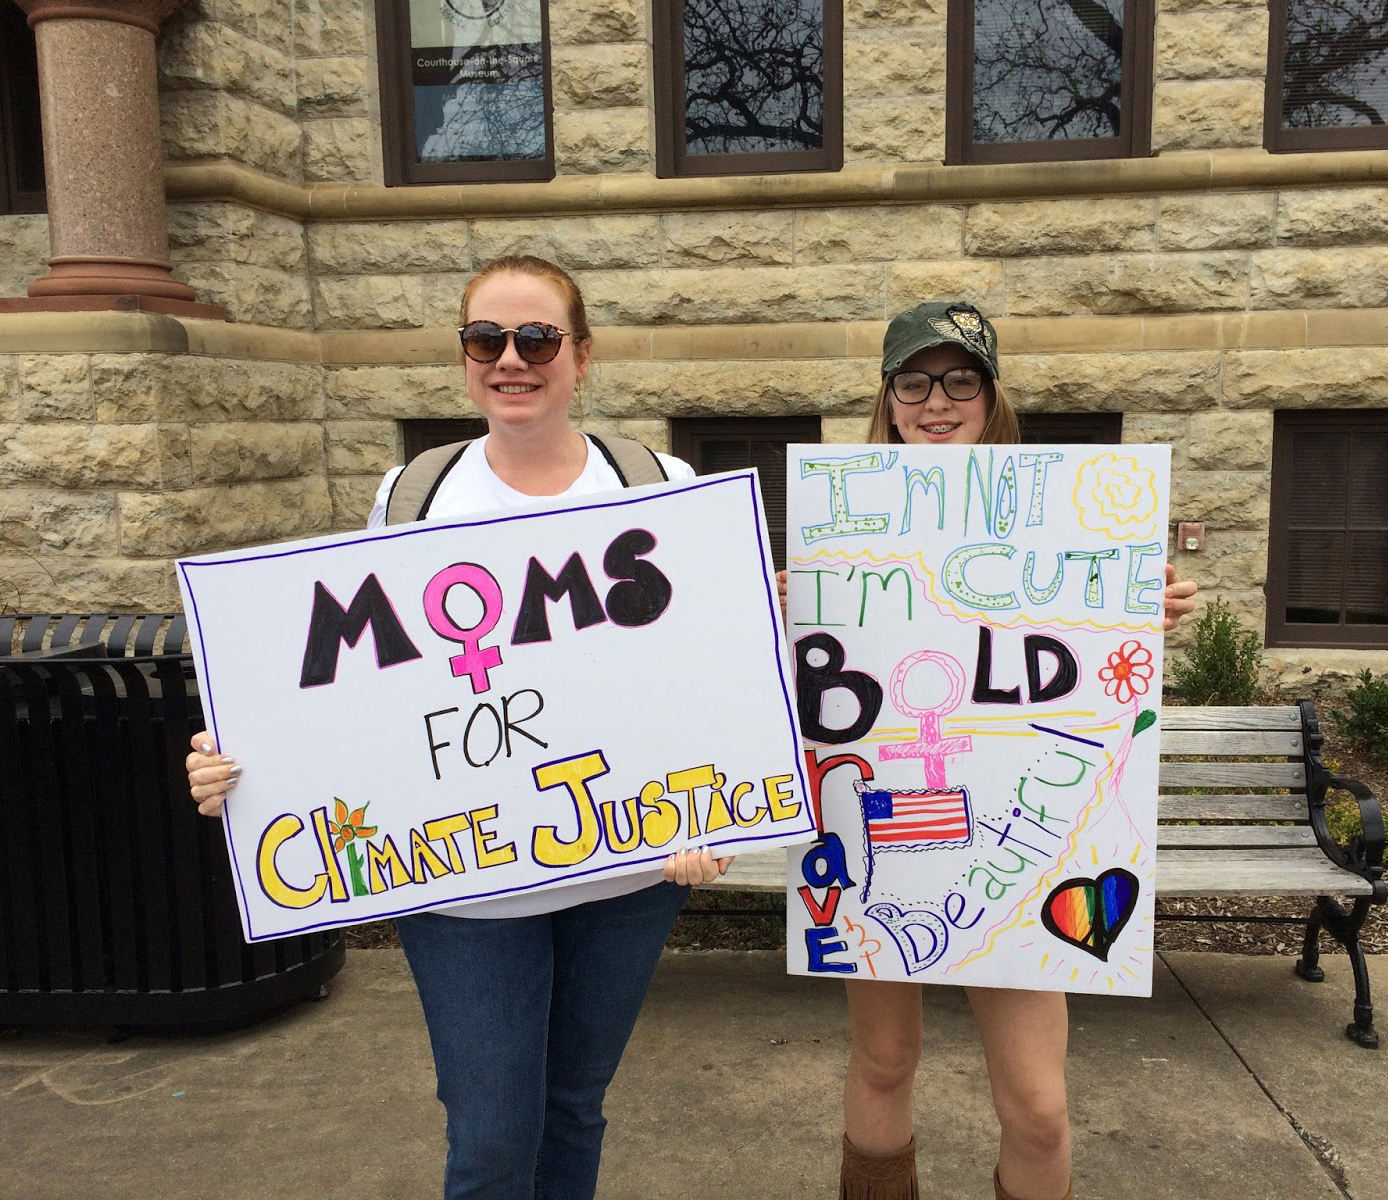 Courthouse-on-the-Square
Museum
MOMS
FOR
CLIMATE JUSTICE
I'm NOT
CUTE
I'M
BOLD
BraVE
& Beautiful